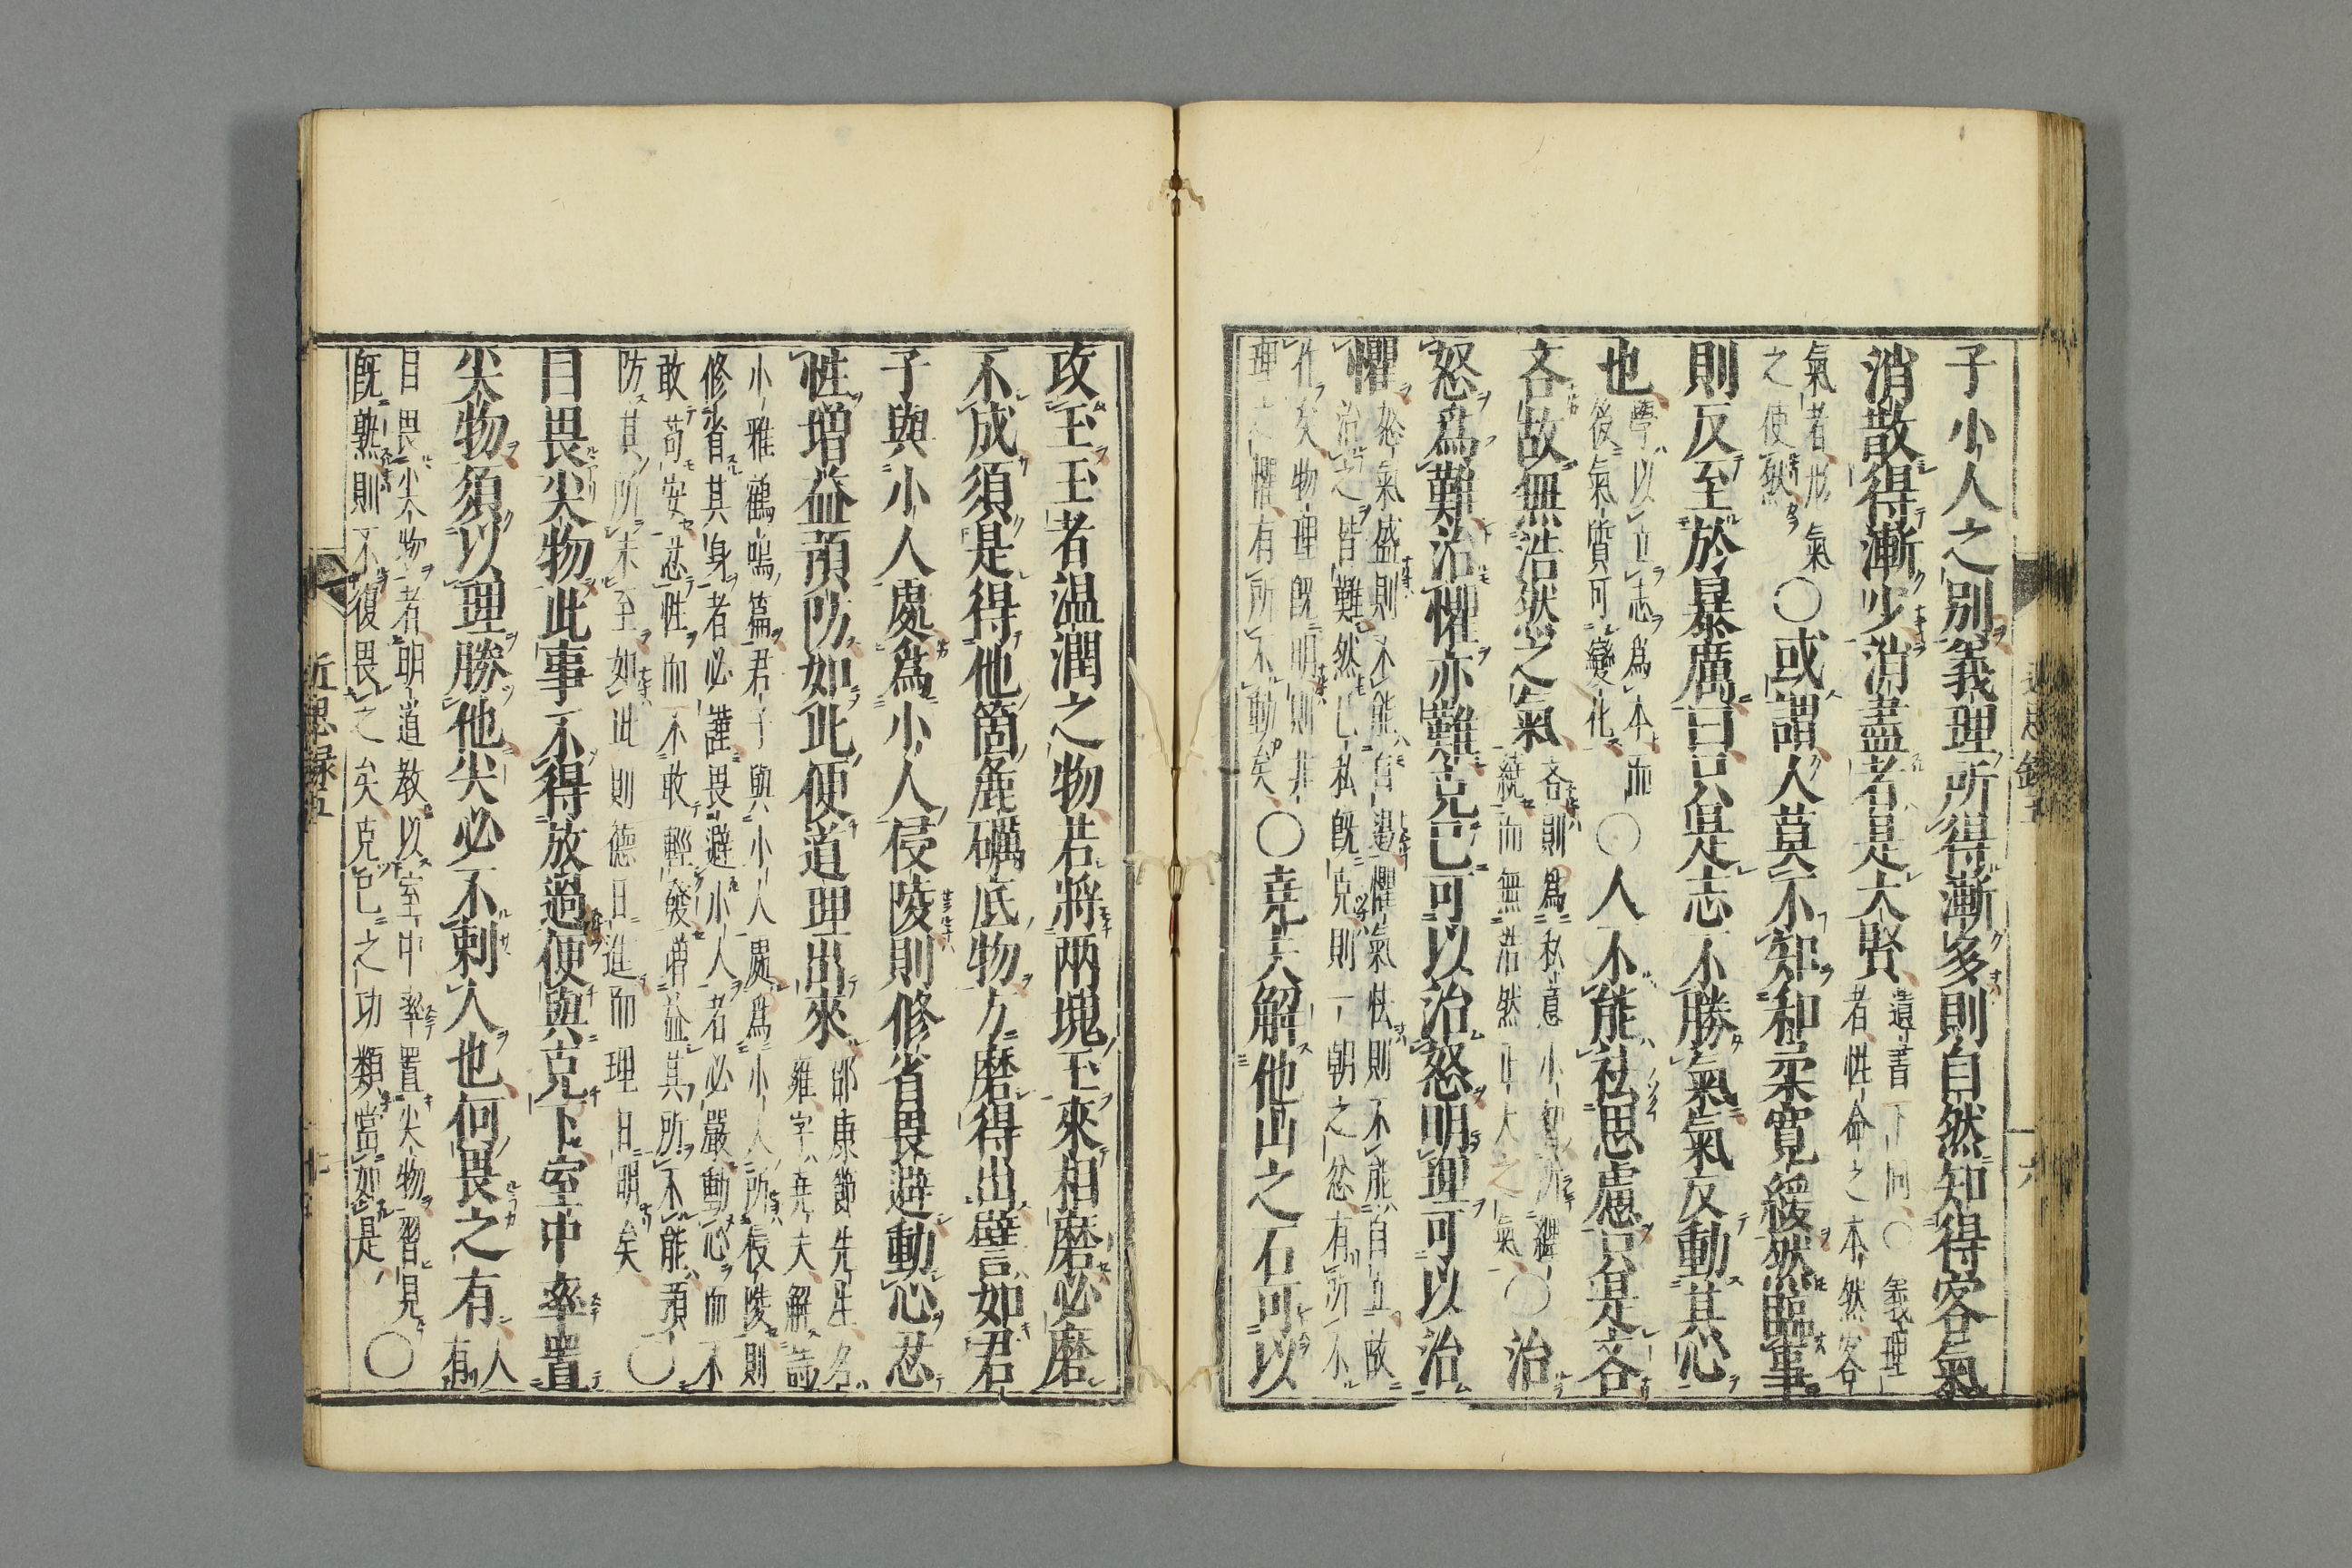 子小人之別義理所得漸多則自然知得客氣
消散得漸少消盡者是大賢
遺書下同〇義理
者性命之本然客
氣者形氣
之使然
〇或謂人莫不知和柔寬緩然臨事
則反至於暴厲曰只是志不勝氣氣反動其心
也
學以立志爲本而
後氣質可變化
〇人不能祛思慮只是吝
吝故無浩然之氣
吝則爲私意小智所纏
繞而無浩然正大之氣
〇治
怒爲難治懼亦難克已可以治怒明理可以治
懼
怒氣盛則不能自遏懼氣怯則不能自立故
治之皆難然已私既克則一朝之忿有所不
作矣物理既明則非
理之懼有所不動矣
〇堯夫解他山之石可以
攻玉玉者温潤之物若將兩塊玉來相磨必磨
不成須是得他箇麁礪底物方磨得出譬如君
子與小人處爲小人侵陵則修省畏避動心忍
性增益預防如此便道理出來
邵康節先生名
雍字堯夫解詩
小雅鶴鳴篇君子與小人處爲小人所侵陵則
修省其身者必謹畏避小人者必嚴動心而不
敢苟安忍性而不敢輕發增益其所不能預
防其所未至如此則德日進而理日明矣
〇
目畏尖物此事不得放過便與克下室中率置
尖物須以理勝他尖必不刺人也何畏之有
人
有
目畏尖物者明道教以室中率置尖物習見
既熟則不復畏之矣克已之功類當如是
〇
近思録五